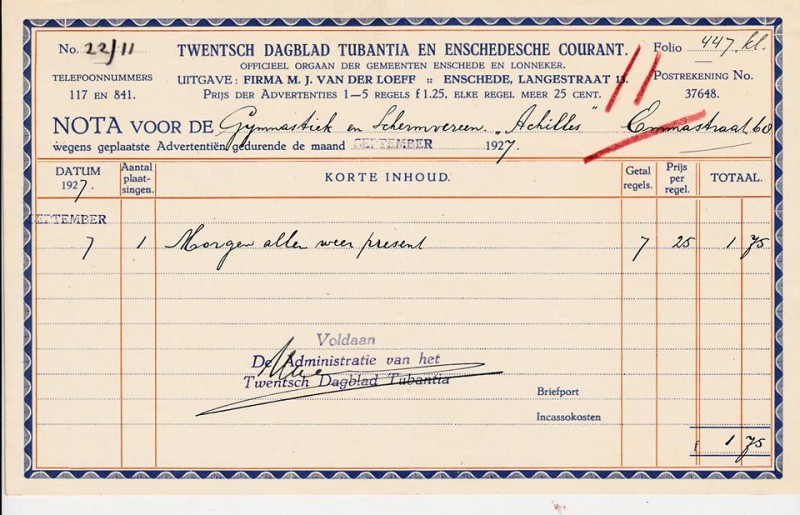 No. 22/11
TWENTSCH DAGBLAD TUBANTIA EN ENSCHEDESCHE COURANT.
Folio 447. kl.
OFFICIEEL ORGAAN DER GEMEENTEN ENSCHEDE EN LONNEKER.
TELEFOONNUMMERS
117 EN 841.
UITGAVE: FIRMA M. J. VAN DER LOEFF :: ENSCHEDE, LANGESTRAAT 13.
PRIJS DER ADVERTENTIES 1—5 REGELS f 1.25, ELKE REGEL MEER 25 CENT.
POSTREKENING No.
37648.
11
NOTA VOOR DE Gymnastiek en Schermvereen. „Achilles" Emmastraat 60
wegens geplaatste Advertentiën gedurende de maand SEPTEMBER 1927.
DATUM
1927.
Aantal
plaat-
singen.
KORTE INHOUD.
Getal
regels.
Prijs
per
regel.
TOTAAL.
SEPTEMBER
7 1 Morgen allen weer present 7 25 1 75
Voldaan
De Administratie van het
Twentsch Dagblad Tubantia
Briefport
Incassokosten
f 1 75